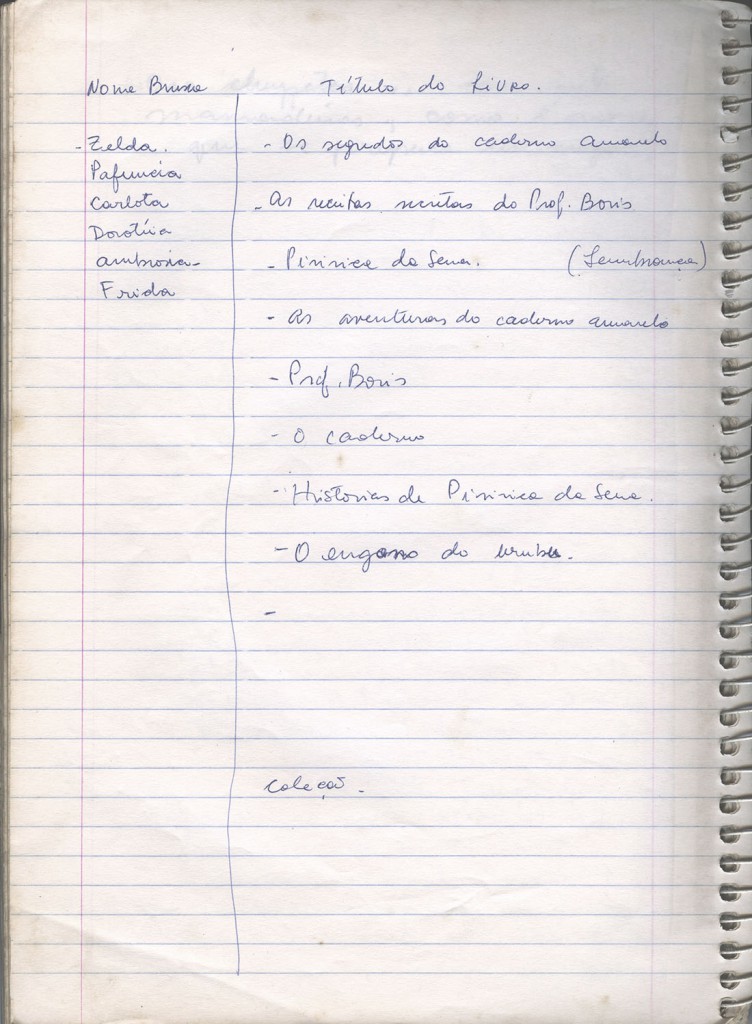 Nome Bruxa
Título do Livro.
- Zelda.
Pafuncia
Carlota
Dorotéia
ambrosia -
Frida
- Os segredos do caderno amarelo
- As receitas secretas do Prof. Boris
- Piririca da Serra. (Lembrança)
- As aventuras do caderno amarelo
- Prof. Boris
- O caderno
- Histórias de Piririca da Serra.
- O engano do urubu.
-
Coleção.